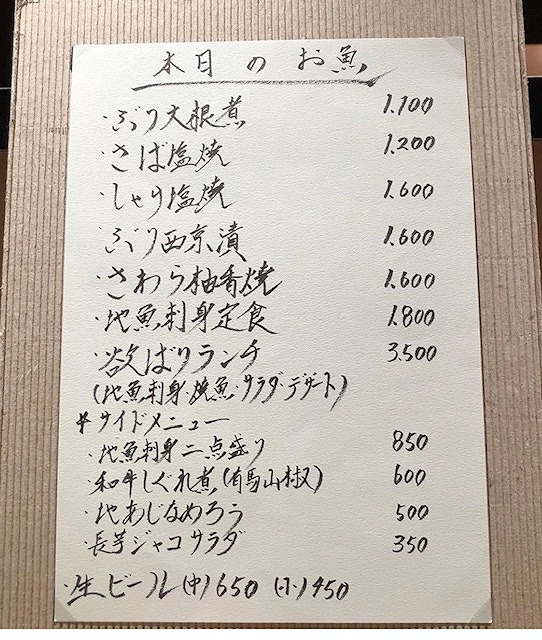 本日のお魚
・ぶり大根煮 1.100
・さば塩焼 1.200
・しゃり塩焼 1.600
・ぶり西京漬 1.600
・さわら柚香焼 1.600
・地魚刺身定食 1.800
・欲ばりランチ 3.500
(地魚刺身・焼魚・サラダ・デザート)
＊サイドメニュー
・地魚刺身二点盛り 850
・和牛しぐれ煮(有馬山椒) 600
・地あじなめろう 500
・長芋ジャコサラダ 350
・生ビール(中)650 (小)450